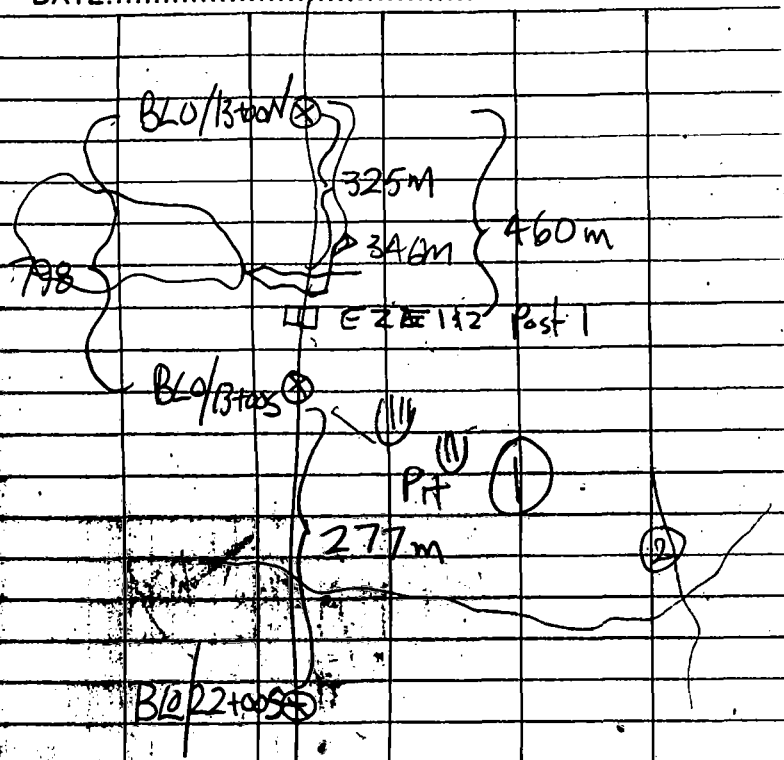 DATE:
BL0/13+00N
325M
346m
460m
798
Post 1
BL0/13+00S
Pit
1
277m
2
BL0/22+00S